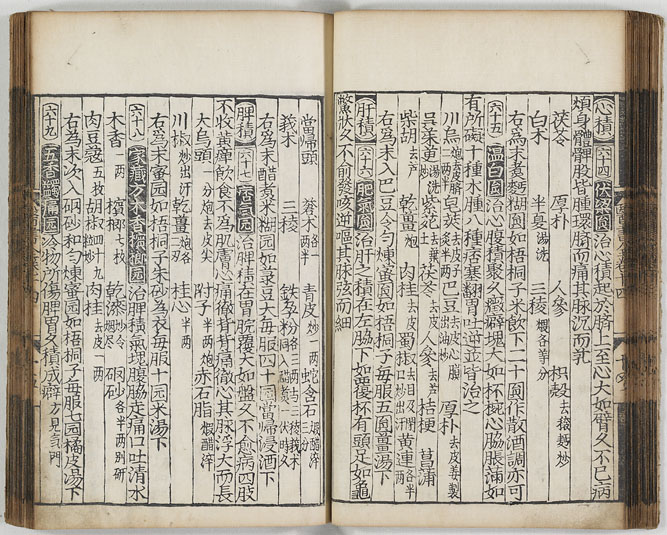 心積 六十四 伏梁圓 治心積起於臍上至心大如臂久不已病
煩身體髀股皆腫環臍而痛其脉沉而芤
茯苓 厚朴 人參 枳殼去穰麩炒
白术 半夏湯洗 三稜煨各等分
右為末煮麪糊圓如梧桐子米飲下二十圓作散酒調亦可
六十五 温白圓 治心腹積聚久癥癖塊大如杯椀心脇脹滿如
有所礙十種水腫八種痞塞翻胃吐逆並皆治之
川烏炮去皮臍二兩半 皂莢去皮子炙 巴豆去皮心膜出油炒 厚朴去皮姜製
吳茱萸炒湯洗 紫菀去土 茯苓去皮 人參去芦 桔梗 菖蒲
柴胡去芦 乾薑炮 肉桂去皮 蜀椒去目及閉口炒出汗 黄連各半兩
右為末入巴豆令勻煉蜜圓如梧桐子每服五圓薑湯下
肝積 六十六 肥氣圓 治肝之積在左脇下如覆杯有頭足如龜
鱉狀久不愈發咳逆嘔其脉弦而細
當歸頭 蒼术各一兩半 青皮炒一兩 蛇含石煅醋淬三分
莪术 三稜 鐵孕粉各三兩與三稜莪术同入醋煮一伏時久
右為末醋煮米糊圓如菉豆大每服四十圓當歸浸酒下
脾積 六十七 痞氣圓 治脾積在胃脘覆大如盤久不愈病四肢
不收黄癉飲食不為肌膚心痛徹背背痛徹心其脉浮大而長
大烏頭一分炮去皮尖 附子半兩炮 赤石脂煅醋淬
川椒炒出汗 乾薑二两炮 桂心半两
右為末蜜圓如梧桐子朱砂為衣每服十圓米湯下
六十八 家藏方木香檳榔圓 治脾積氣塊腹脇走痛口吐清水
木香一两 檳榔七枚 乾漆炒令烟尽 硇砂各半两別研
肉豆蔻五枚 胡椒四十九粒炒 肉桂去皮一两
右為末次入硇砂和勻煉蜜圓如梧桐子每服七圓橘皮湯下
六十九 五香蠲痛圓 冷物所傷脾胃久積成癖方見氣門